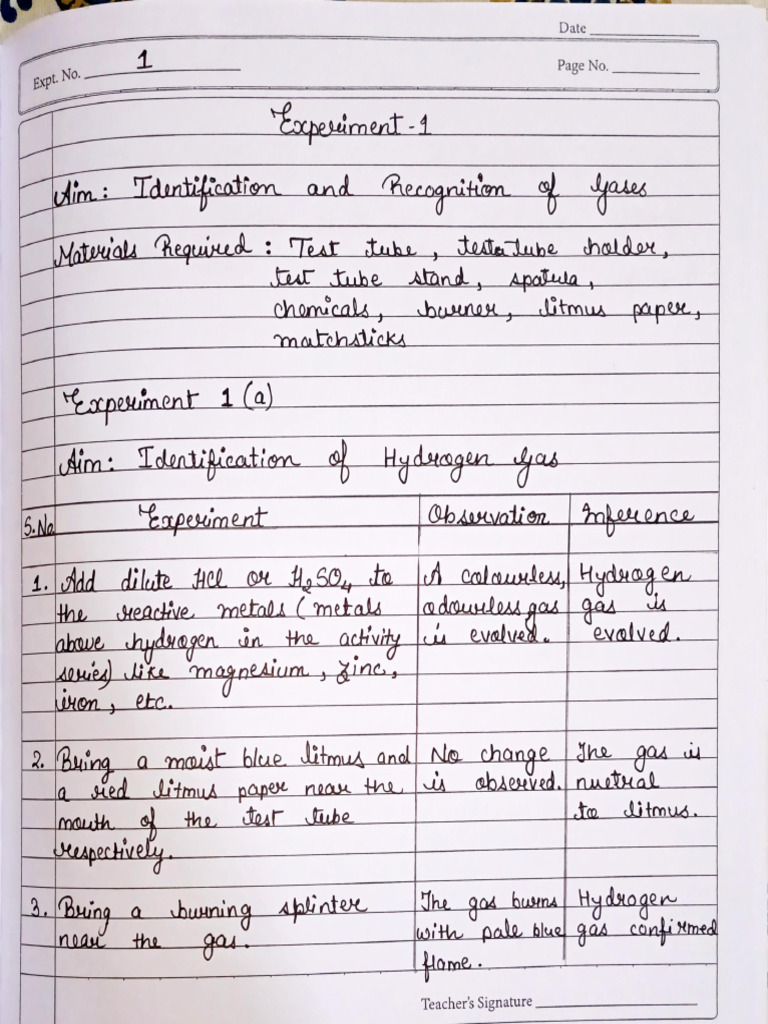 Date
Expt. No. 1
Page No.
Experiment - 1
Aim: Identification and Recognition of Gases
Materials Required: Test tube, test tube holder,
test tube stand, spatula,
chemicals, burner, litmus paper,
matchsticks
Experiment 1 (a)
Aim: Identification of Hydrogen Gas
S.No Experiment Observation Inference
1. Add dilute HCl or H₂SO₄ to A colourless, Hydrogen
the reactive metals (metals odourless gas gas is
above hydrogen in the activity is evolved. evolved.
series) like magnesium, zinc,
iron, etc.
2. Bring a moist blue litmus and No change The gas is
a red litmus paper near the is observed. nuetral
mouth of the test tube to litmus.
respectively.
3. Bring a burning splinter The gas burns Hydrogen
near the gas. with pale blue gas confirmed
flame.
Teacher's Signature